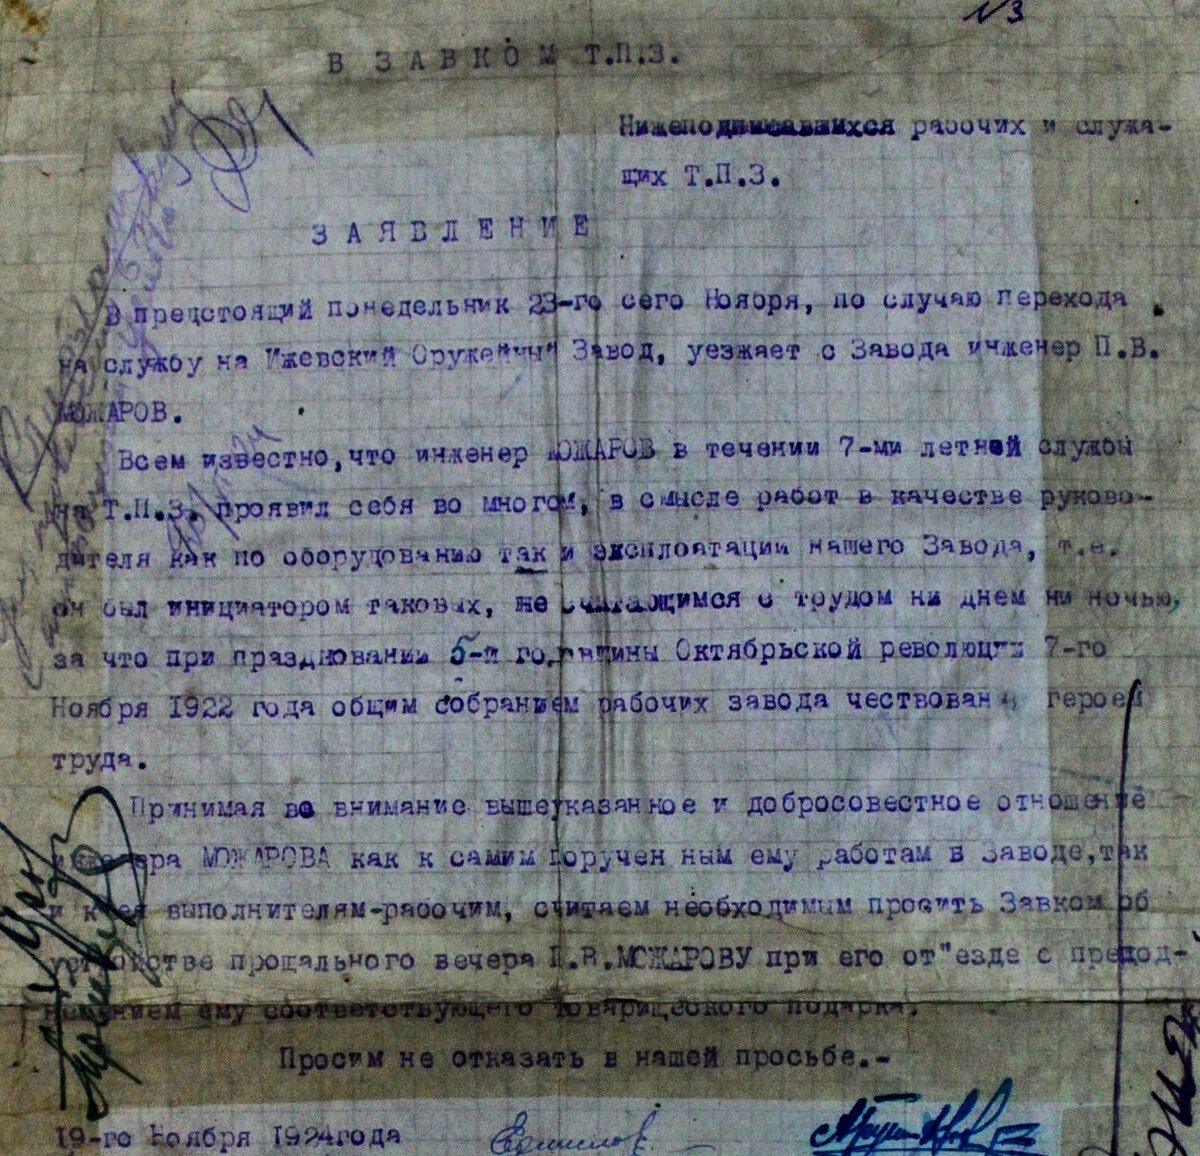 №3
В ЗАВКОМ Т.П.З.
Нижеподписавшихся рабочих и служа-
щих Т.П.З.
ЗАЯВЛЕНИЕ
В предстоящий понедельник 23-го сего Ноября, по случаю перехода
на службу на Ижевский Оружейный Завод, уезжает с Завода инженер П.В.
МОЖАРОВ.
Всем известно, что инженер МОЖАРОВ в течении 7-ми летней службы
на Т.П.З. проявил себя во многом, в смысле работ в качестве руково-
дителя как по оборудованию так и эксплоатации нашего Завода, т.е.
он был инициатором таковых, не считающимся с трудом ни днем ни ночью,
за что при праздновании 5-й годовщины Октябрьской революции 7-го
Ноября 1922 года общим собранием рабочих завода чествован героем
труда.
Принимая во внимание вышеуказанное и добросовестное отношение
инженера МОЖАРОВА как к самим поручен ным ему работам в Заводе, так
и к ея выполнителям-рабочим, считаем необходимым просить Завком об
устройстве прощального вечера П.В.МОЖАРОВУ при его от"езде с препод-
несением ему соответствующего товарищеского подарка.
Просим не отказать в нашей просьбе.-
19-го Ноября 1924года